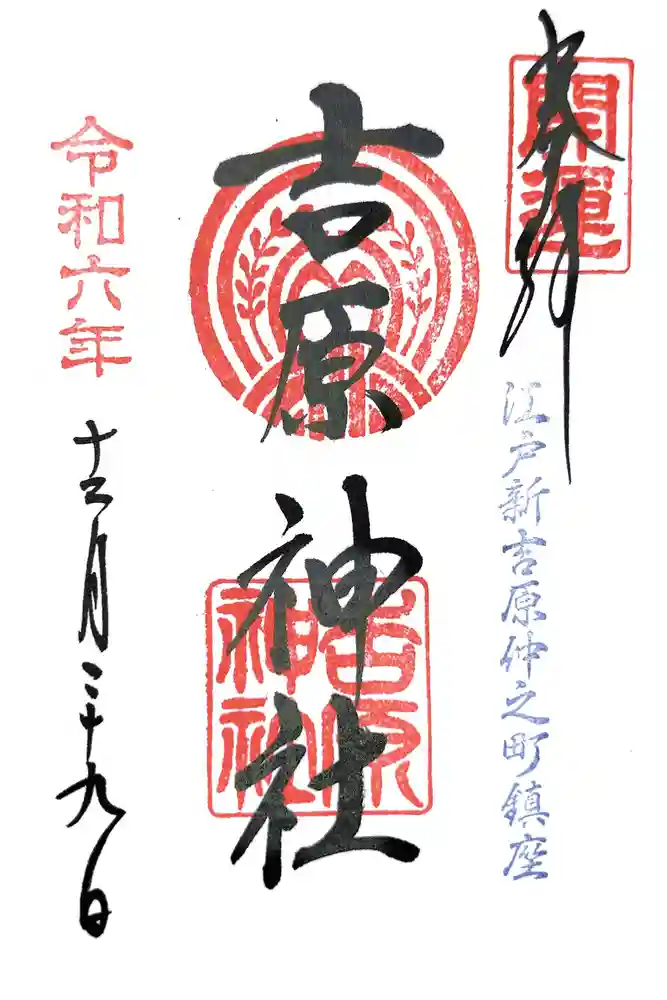 開運
奉拝
江戸新吉原仲之町鎮座
吉原神社
吉原神社
令和六年
十二月二十九日